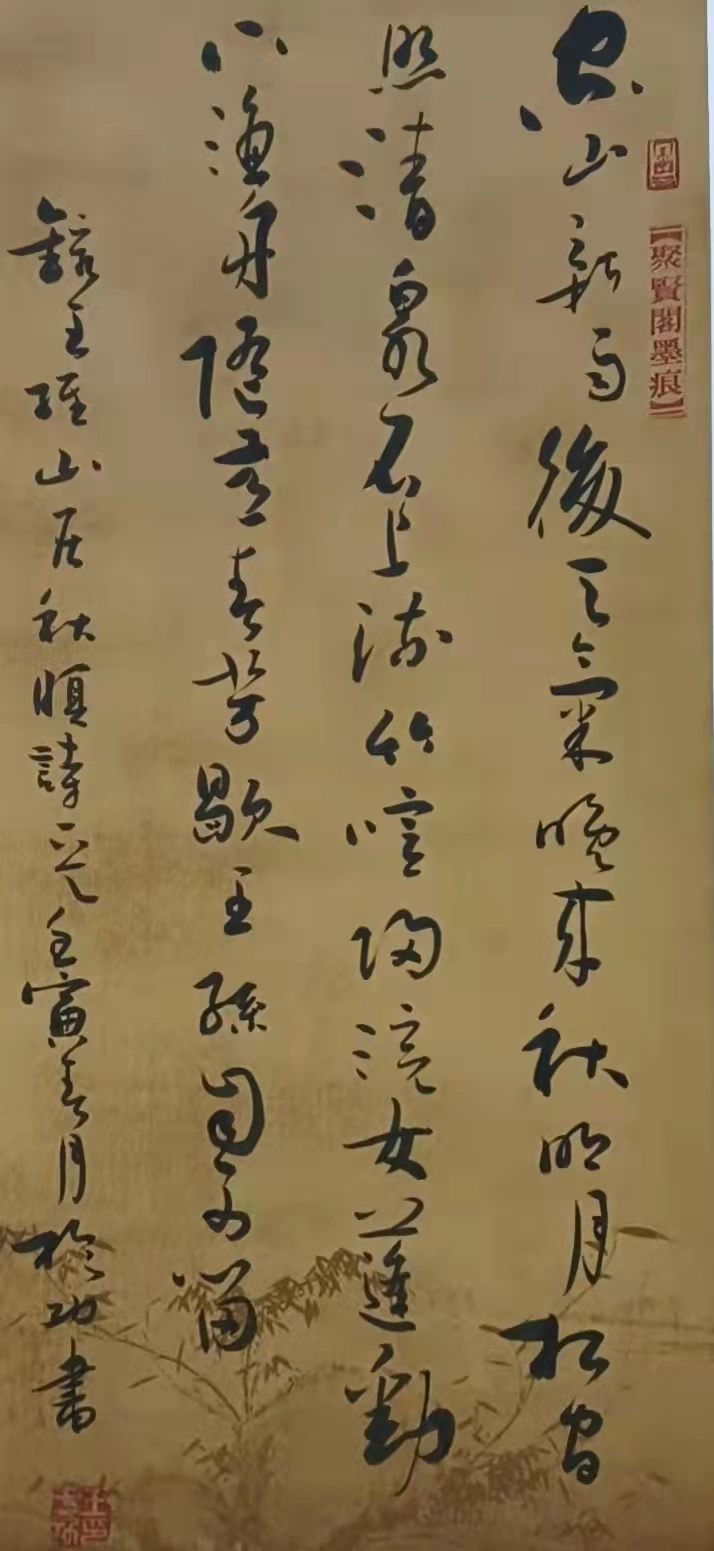 【聚賢閣墨痕】
空山新雨後天氣晚來秋明月松間
照清泉石上流竹喧歸浣女蓮動
下漁舟隨意春芳歇王孫自可留
錄王維山居秋暝詩一首壬寅春月功書